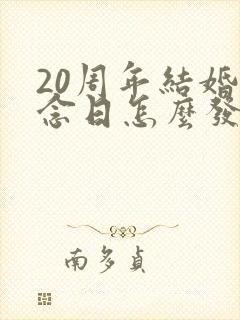 20周年結婚
念日怎麼發
南多貞